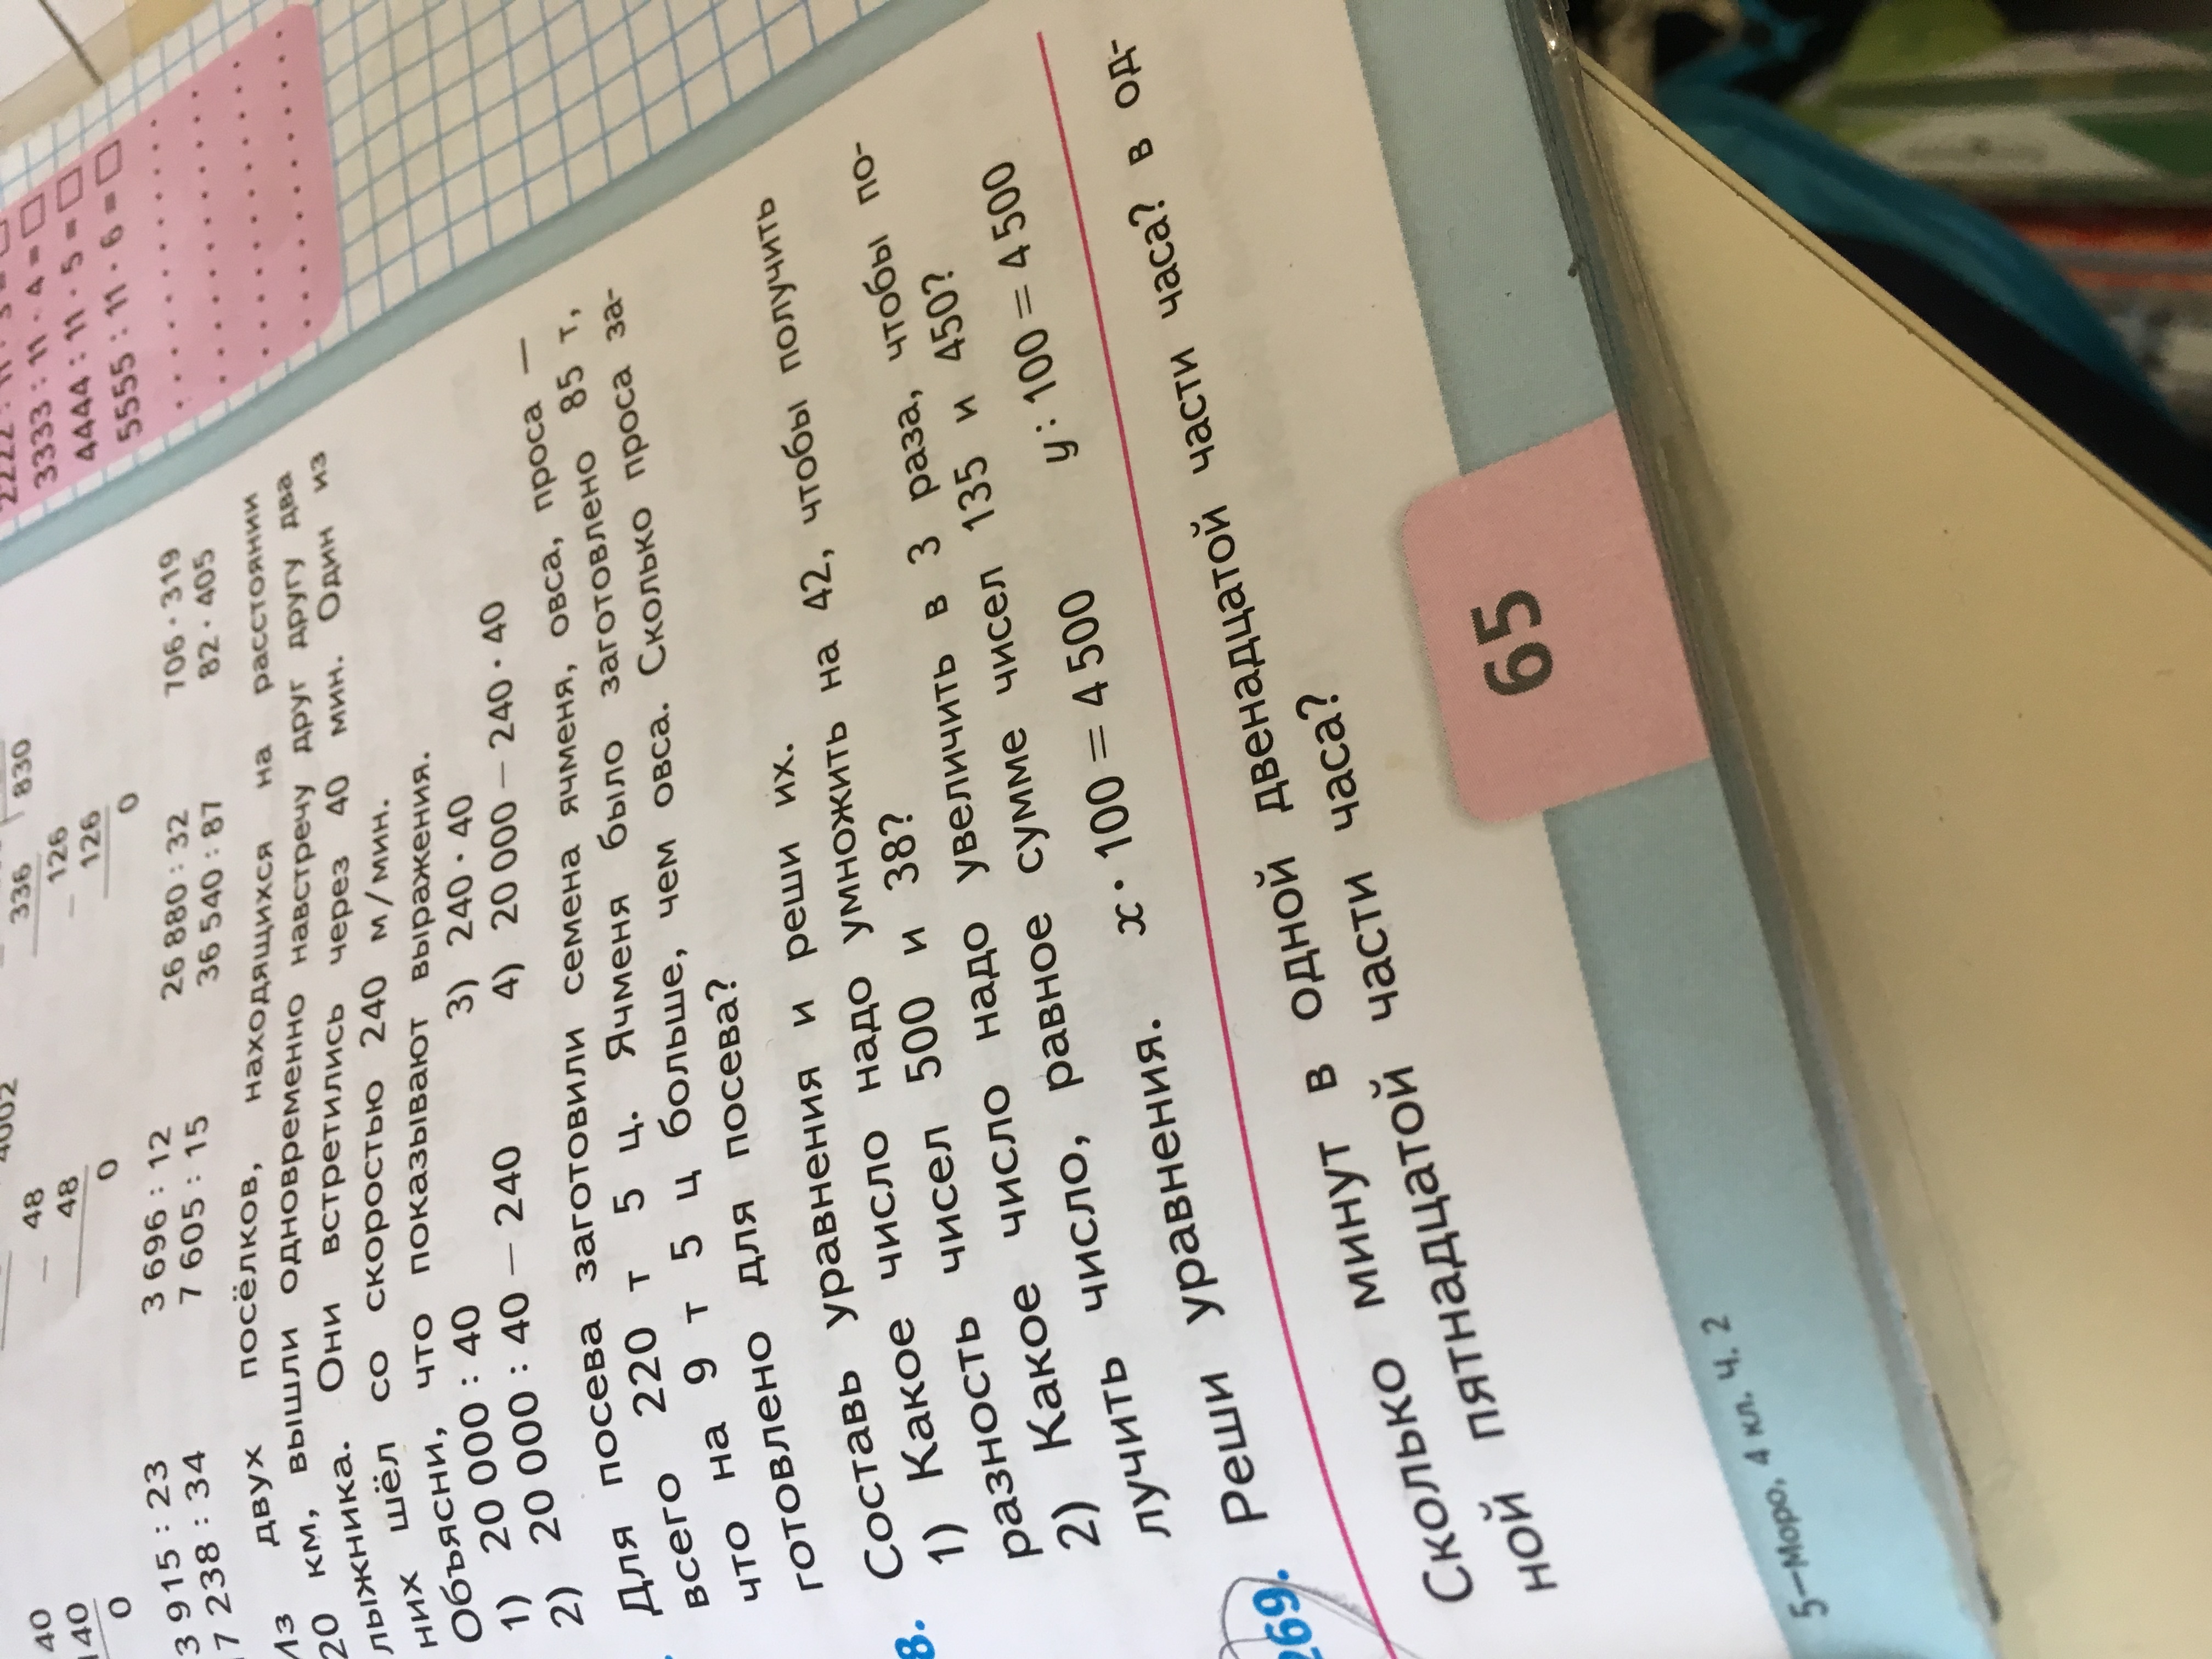 3333 : 11 · 4 =
4444 : 11 · 5 =
5555 : 11 · 6 =
4002
336
830
40
48
126
140
48
126
0
0
0
3 915 : 23 3 696 : 12 26 880 : 32 706 · 319
7 238 : 34 7 605 : 15 36 540 : 87 82 · 405
Из двух посёлков, находящихся на расстоянии
20 км, вышли одновременно навстречу друг другу два
лыжника. Они встретились через 40 мин. Один из
них шёл со скоростью 240 м/мин.
Объясни, что показывают выражения.
1) 20 000 : 40 3) 240 · 40
2) 20 000 : 40 – 240 4) 20 000 – 240 · 40
Для посева заготовили семена ячменя, овса, проса —
всего 220 т 5 ц. Ячменя было заготовлено 85 т,
что на 9 т 5 ц больше, чем овса. Сколько проса за-
готовлено для посева?
8. Составь уравнения и реши их.
1) Какое число надо умножить на 42, чтобы получить
разность чисел 500 и 38?
2) Какое число надо увеличить в 3 раза, чтобы по-
лучить число, равное сумме чисел 135 и 450?
269. Реши уравнения. x · 100 = 4 500 y : 100 = 4 500
Сколько минут в одной двенадцатой части часа? в од-
ной пятнадцатой части часа?
65
5–Моро, 4 кл. ч. 2